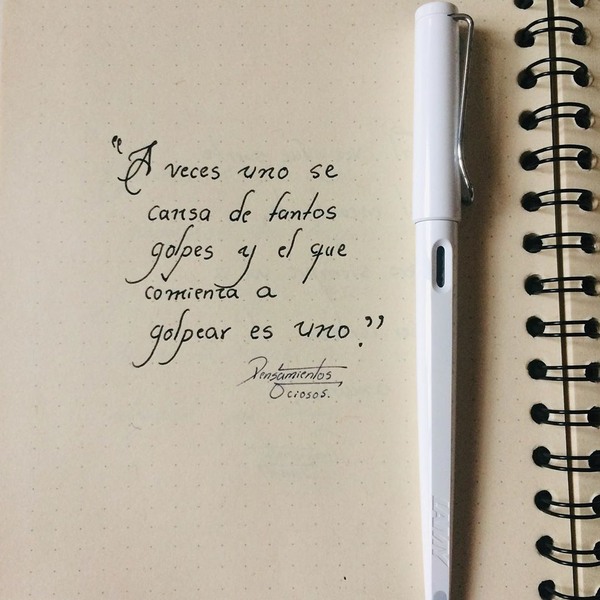 "A veces uno se
cansa de tantos
golpes y el que
comienza a
golpear es uno."
Pensamientos
Ociosos.
LAMY